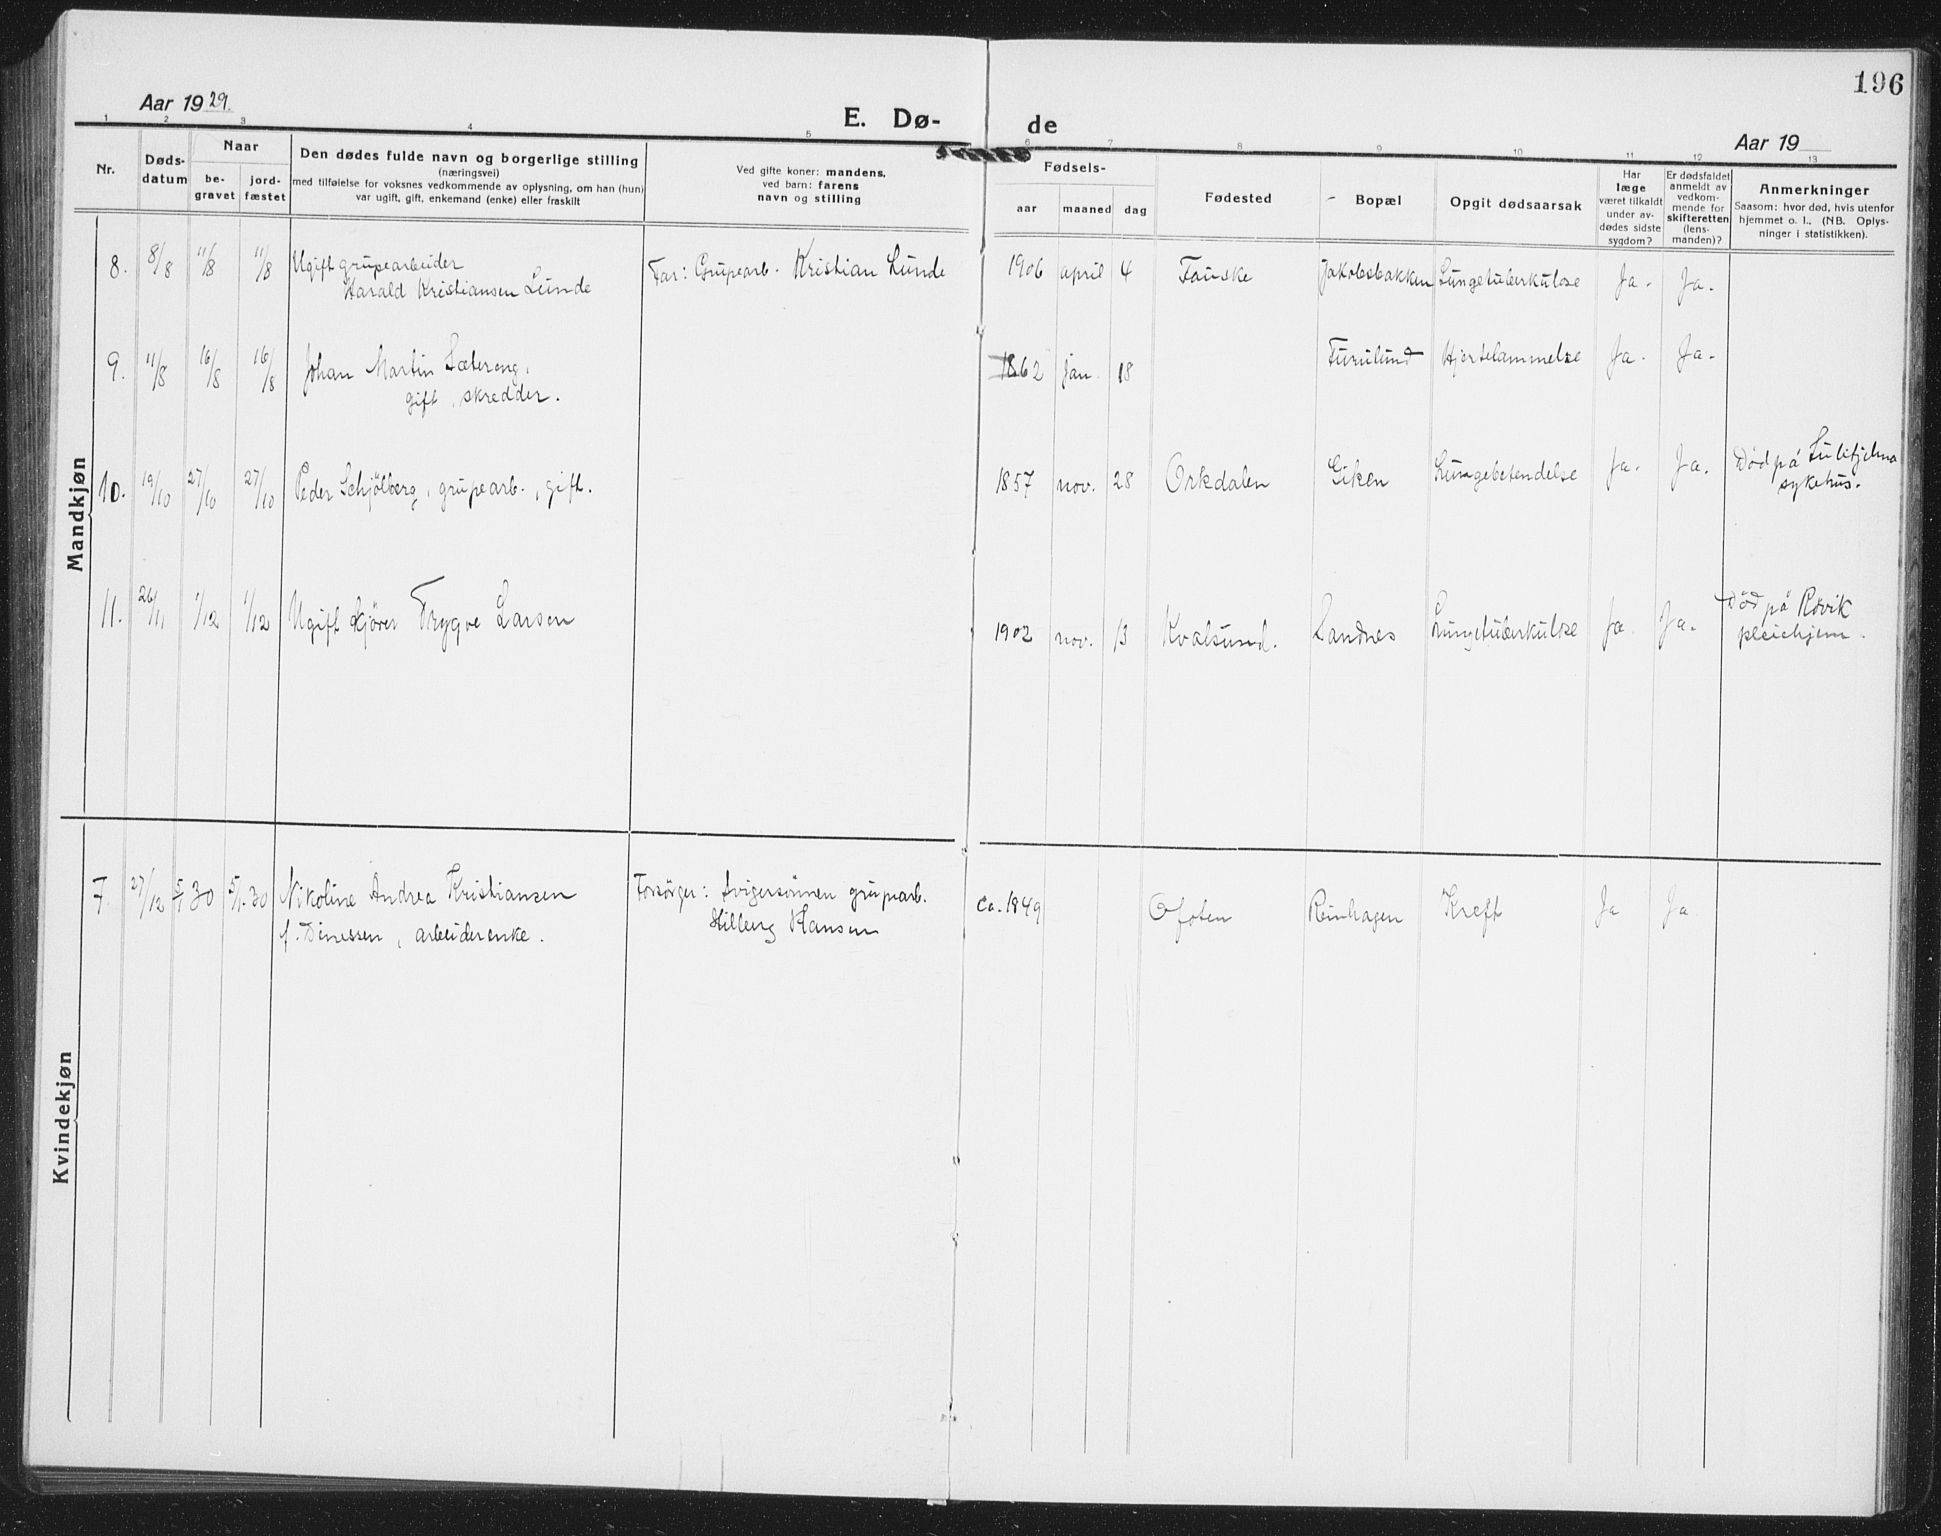 196
Aar 1929.
E. Dø-
de
Aar 19
1 2 3 4 5 6 7 8 9 10 11 12 13
Nr.
Døds-
datum
Naar
be-
gravet
jord-
fæstet
Den dødes fulde navn og borgerlige stilling
(næringsvei)
med tilføielse for voksnes vedkommende av oplysning, om han (hun)
var ugift, gift, enkemand (enke) eller fraskilt
Ved gifte koner: mandens,
ved barn: farens
navn og stilling
Fødsels-
aar maaned dag
Fødested
Bopæl
Opgit dødsaarsak
Har
læge
været tilkaldt
under av-
dødes sidste
sygdom?
Er dødsfaldet
anmeldt av
vedkom-
mende for
skifteretten
(lens-
manden)?
Anmerkninger
Saasom: hvor død, hvis utenfor
hjemmet o. l., (NB. Oplys-
ninger i statistikken).
Mandkjøn
8. 8/8 11/8 11/8 Ugift grupearbeider
Harald Kristiansen Lunde
Far: Grupearb. Kristian Lunde
1906 april 4 Fauske Jakobsbakken Lungetuberkulose Ja. Ja.
9. 11/8 16/8 16/8 Johan Martin Sætereng,
gift, skredder.
1862 jan. 18 Furulund Hjertelammelse Ja. Ja.
10. 19/10 27/10 27/10 Peder Schjølberg, grupearb., gift.
1857 nov. 28 Orkdalen Giken Lungebetendelse Ja. Ja. Död på Sulitjelma
sykehus.
11. 26/11 1/12 1/12 Ugift kjörer Trygve Larsen
1902 nov. 13 Kvalsund. Sandnes Lungetuberkulose Ja. Ja. Död på Rövik
pleiehjem.
Kvindekjøn
7. 27/12 5/1 30 5/1 30 Nikoline Andrea Kristiansen
f. Dinessen, arbeiderenke.
Forsörger: svigersönnen grubearb.
Hilberg Hansen
Ca. 1849 Ofoten Reinhagen Kreft Ja Ja